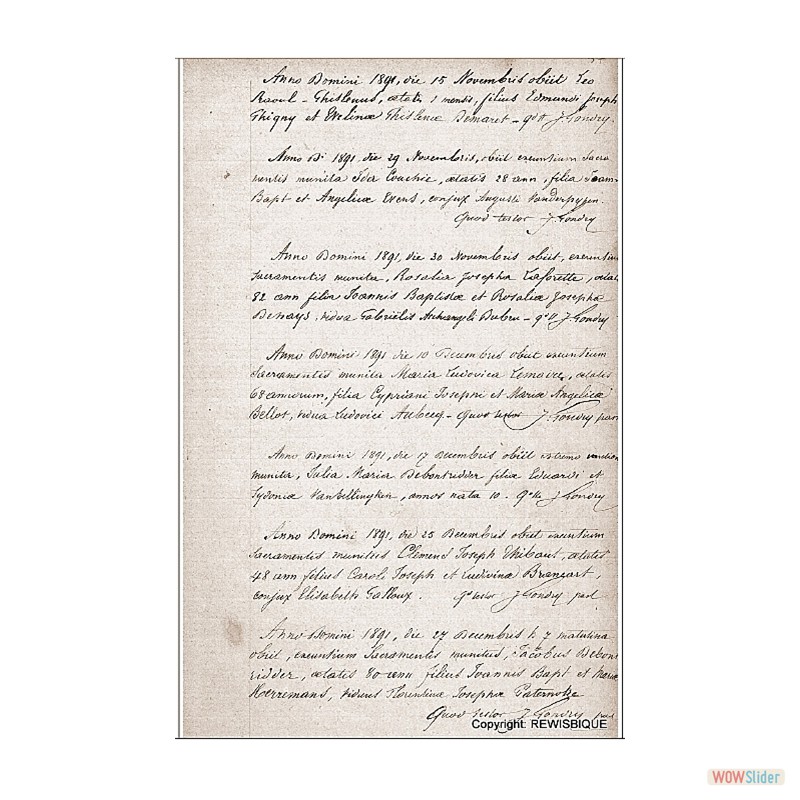 Anno Domini 1891, die 15 Novembris obiit Leo
Raoul - Ghislenus, ætatis 1 mensis, filius Edmundi Joseph
Thigny et Evelinæ Ghislenæ Demaret - J. Gondry.
Anno Di 1891 die 29 Novembris, obiit exeuntium Sacra
mentis munita Ida Couchie, ætatis 28 ann, filia Joann
Bapt et Angelicæ Evens, conjux Augusti Vanderpypen.
Quod testor J. Gondry
Anno Domini 1891, die 30 Novembris obiit, exeuntium
Sacramentis munita, Rosalia Josepha Laforette, ætat
82 ann filia Joannis Baptistæ et Rosaliæ Josephæ
Denays, vidua Gabrielis Archangeli Dubru - J. Gondry
Anno Domini 1891 die 10 Decembris obiit exeuntium
Sacramentis munita Maria Ludovica Lemaire, ætatis
68 annorum, filia Cypriani Josephi et Mariæ Angelicæ
Bellot, vidua Ludovici Aubecq - Quod testor J. Gondry par
Anno Domini 1891, die 17 Decembris obiit extrema unction
munita, Julia Maria Debontridder filia Eduardi et
Sydoniæ Vanbellinghen, annos nata 10. J. Gondry
Anno Domini 1891, die 25 Decembris obiit exeuntium
Sacramentis munitus Clemens Joseph Thibaut, ætatis
48 ann filius Caroli Joseph et Ludivina Brançart,
conjux Elisabeth Galloux. Q testor J. Gondry par
Anno Domini 1891, die 27 Decembris h 7 matutina
obiit, exeuntium Sacramentis munitus, Jacobus Debont
ridder, ætatis 80 ann filius Joannis Bapt et Mariæ
Herremans, viduus Florentinæ Josephæ Paternotre
Quod testor J. Gondry par
Copyright: REWISBIQUE
WOWSlider